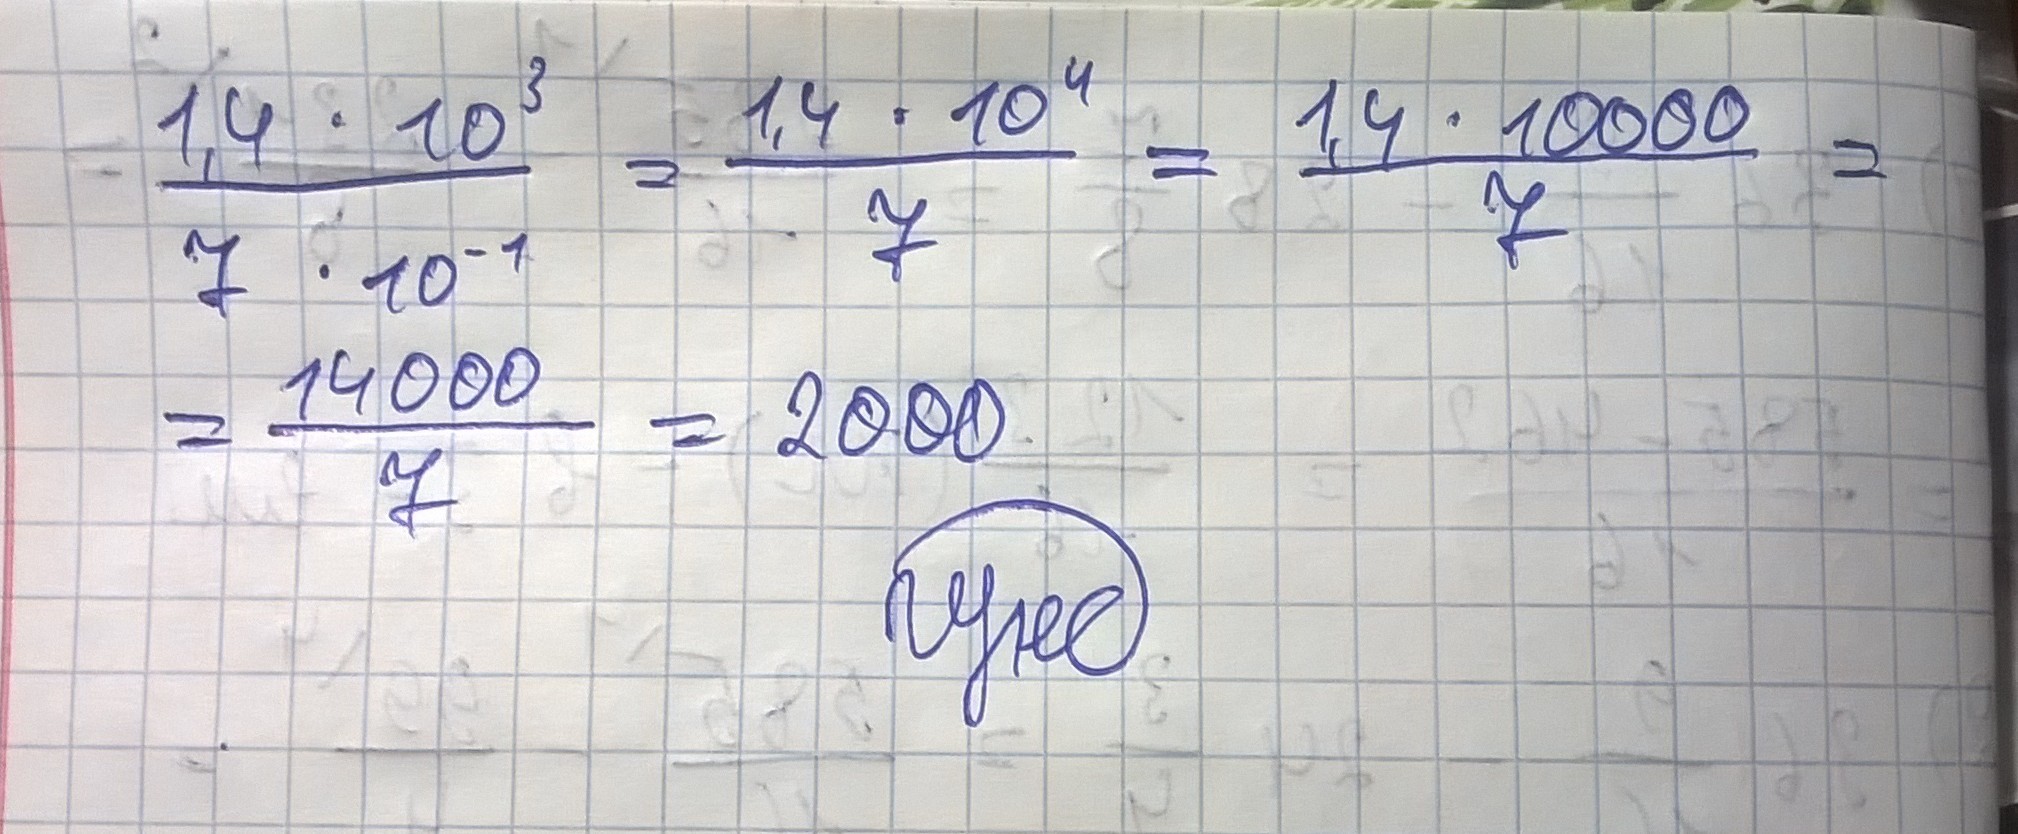 1,4 · 10³ / 7 · 10⁻¹ = 1,4 · 10⁴ / 7 = 1,4 · 10000 / 7 =
= 14000 / 7 = 2000